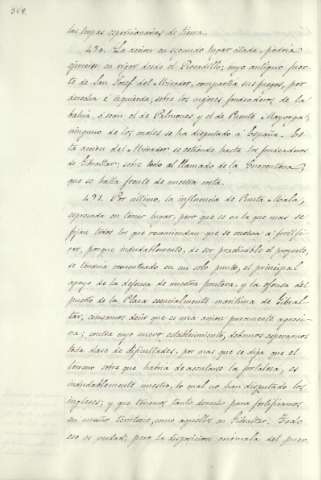 las tropas espedicionarias de tierra.
430. La accion en segundo lugar citada, podria
ejercerse en rigor desde el Pecadillo; muy antiguo fuer-
te de San José del Mirador, compartia sus fuegos, por
derecha e izquierda, sobre los mejores fondeaderos de la
bahia, o sean el de Palmones, y el de Puente Mayorga;
ninguno de los cuales se ha disputado a España. Es-
ta accion del Mirador se estiende hasta los fondeaderos
de Gibraltar; sobre todo al llamado de la
que se halla frente de nuestra costa.
431. Por ultimo, la influencia de Punta Mala,
espresada en tercer lugar, pero que es en la que mas se
fijan todos los que recomiendan que se vuelva a fortifi-
car, porque indudablemente, de ser practicable el proyecto,
se tendria concentrado en un solo punto, el principal
apoyo de la defensa de nuestra frontera, y la ofensa del
puerto de la Plaza esencialmente maritima de Gibral-
tar, creemos decir que es una accion puramente agresi-
va; contra cuyo nuevo establecimiento, debemos esperarnos
toda clase de dificultades, por mas que se diga que el
terreno sobre que habria de asentarse la fortaleza, es
indudablemente nuestro, lo cual no han disputado los
ingleses; y que tenemos tanto derecho para fortificarnos
en nuestro territorio, como aquellos en Gibraltar. Todo
eso es verdad; pero la disposicion del puer-